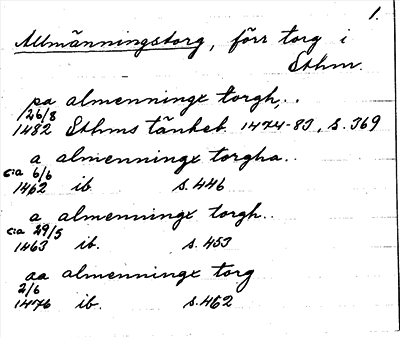 1.
Allmänningstorg, förr torg i
Sthm.
pa almenningx torgh, ..
26/8
1482 Sthms tänkeb. 1474-83, s. 369
a almenningx torgha..
c:a 6/6
1462 ib. s. 446
a almenningx torgh..
c:a 29/5
1463 ib. s. 453
aa almenningx torg
2/6
1476 ib. s. 462